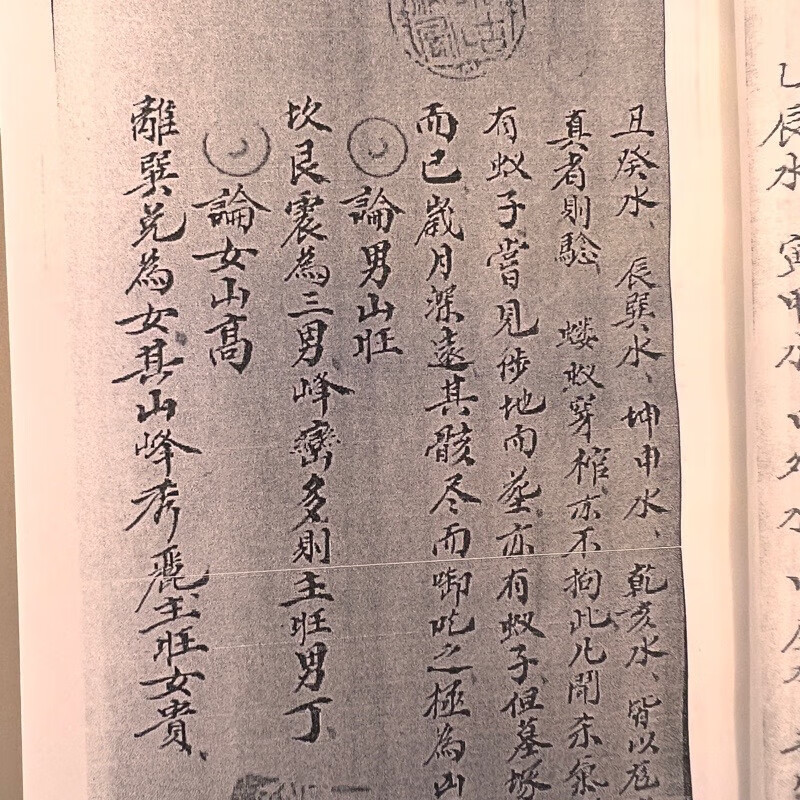 乙辰水
寅甲水
丑癸水、辰巽水、坤申水、乾亥水、皆以
真者則騐　螻蚁穿棺亦不拘此凢開
有蚁子嘗見纱地而塟亦有蚁子但墓塚
而已歲月深遠其骸尽而啣吃之極為山
論男山旺
坎艮震為三男峰巒多則主旺男丁
論女山高
離巽兑為女其山峰秀麗主旺女貴